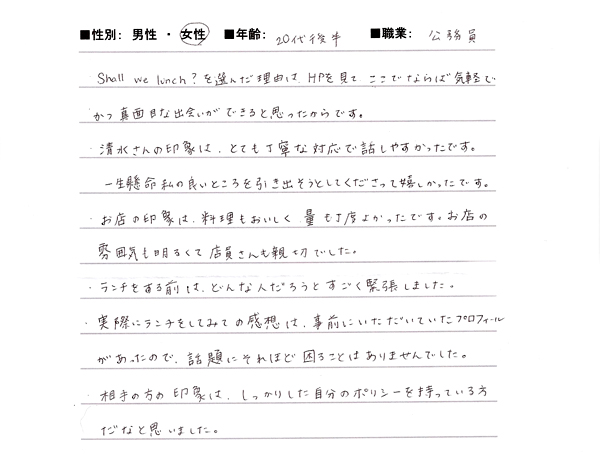 ■性別: 男性 ・ 女性 ■年齢: 20代後半 ■職業: 公務員
・Shall we lunch?を選んだ理由は、HPを見て ここでならば気軽で
かつ真面目な出会いができると思ったからです。
・清水さんの印象は、とても丁寧な対応で話しやすかったです。
一生懸命私の良いところを引き出そうとしてくださって嬉しかったです。
・お店の印象は、料理もおいしく、量も丁度よかったです。お店の
雰囲気も明るくて店員さんも親切でした。
・ランチをする前は、どんな人だろうとすごく緊張しました。
・実際にランチをしてみての感想は、事前にいただいていたプロフィール
があったので、話題にそれほど困ることはありませんでした。
・相手の方の印象は、しっかりした自分のポリシーを持っている方
だなと思いました。